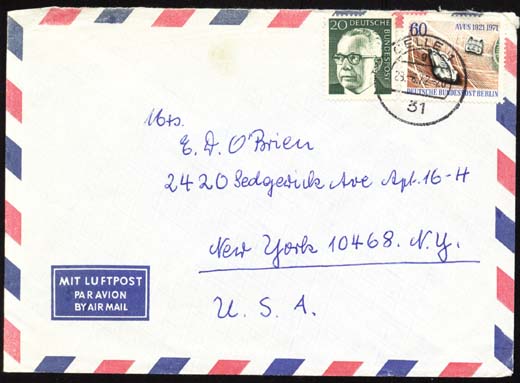 20 DEUTSCHE BUNDESPOST
60 AVUS 1921-1971
DEUTSCHE BUNDESPOST BERLIN
CELLE
31
Mrs.
E. D. O'Brien
2420 Sedgewick Ave Apt. 16-H
New York 10468. N.Y.
U. S. A.
MIT LUFTPOST
PAR AVION
BY AIR MAIL